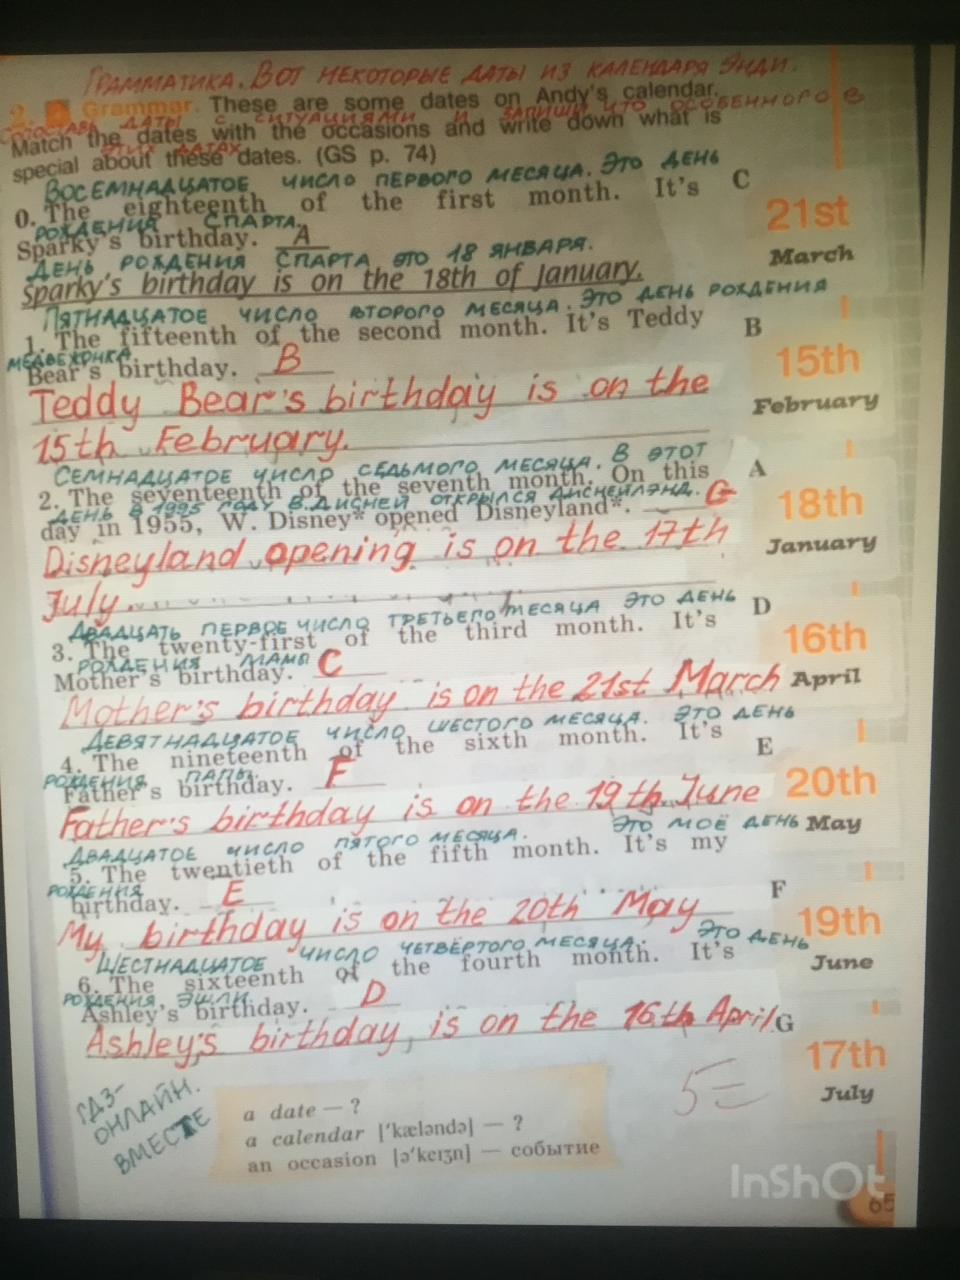 ГРАММАТИКА. ВОТ НЕКОТОРЫЕ ДАТЫ ИЗ КАЛЕНДАРЯ ЭНДИ.
2. Grammar. These are some dates on Andy's calendar.
СОПОСТАВЬ ДАТЫ С СИТУАЦИЯМИ И ЗАПИШИ ЧТО ОСОБЕННОГО В
Match the dates with the occasions and write down what is
ЭТИХ ДАТАХ
special about these dates. (GS p. 74)
ВОСЕМНАДЦАТОЕ ЧИСЛО ПЕРВОГО МЕСЯЦА. ЭТО ДЕНЬ
0. The eighteenth of the first month. It's
РОЖДЕНИЯ СПАРТА.
Sparky's birthday. A
ДЕНЬ РОЖДЕНИЯ СПАРТА ЭТО 18 ЯНВАРЯ.
Sparky's birthday is on the 18th of January.
ПЯТНАДЦАТОЕ ЧИСЛО ВТОРОГО МЕСЯЦА. ЭТО ДЕНЬ РОЖДЕНИЯ
1. The fifteenth of the second month. It's Teddy
МЕДВЕЖОНКА
Bear's birthday. B
Teddy Bear's birthday is on the
15th February.
СЕМНАДЦАТОЕ ЧИСЛО СЕДЬМОГО МЕСЯЦА. В ЭТОТ
2. The seventeenth of the seventh month. On this
ДЕНЬ В 1995 ГОДУ В. ДИСНЕЙ ОТКРЫЛСЯ ДИСНЕЙЛЭНД.
day in 1955, W. Disney* opened Disneyland*. G
Disneyland opening is on the 17th
July.
ДВАДЦАТЬ ПЕРВОЕ ЧИСЛО ТРЕТЬЕГО МЕСЯЦА ЭТО ДЕНЬ
3. The twenty-first of the third month. It's
РОЖДЕНИЯ МАМЫ
Mother's birthday. C
Mother's birthday is on the 21st March
ДЕВЯТНАДЦАТОЕ ЧИСЛО ШЕСТОГО МЕСЯЦА. ЭТО ДЕНЬ
4. The nineteenth of the sixth month. It's
РОЖДЕНИЯ ПАПЫ.
Father's birthday. F
Father's birthday is on the 19th June
ДВАДЦАТОЕ ЧИСЛО ПЯТОГО МЕСЯЦА. ЭТО МОЁ ДЕНЬ
5. The twentieth of the fifth month. It's my
РОЖДЕНИЯ
birthday. E
My birthday is on the 20th May
ШЕСТНАДЦАТОЕ ЧИСЛО ЧЕТВЁРТОГО МЕСЯЦА. ЭТО ДЕНЬ
6. The sixteenth of the fourth month. It's
РОЖДЕНИЯ. ЭШЛИ.
Ashley's birthday. D
Ashley's birthday is on the 16th April.
C
21st
March
B
15th
February
A
18th
January
D
16th
April
E
20th
May
F
19th
June
G
17th
July
5=
ГДЗ-
ОНЛАЙН.
ВМЕСТЕ
a date — ?
a calendar ['kæləndə] — ?
an occasion [ə'keɪʒn] — событие
InShOt
65